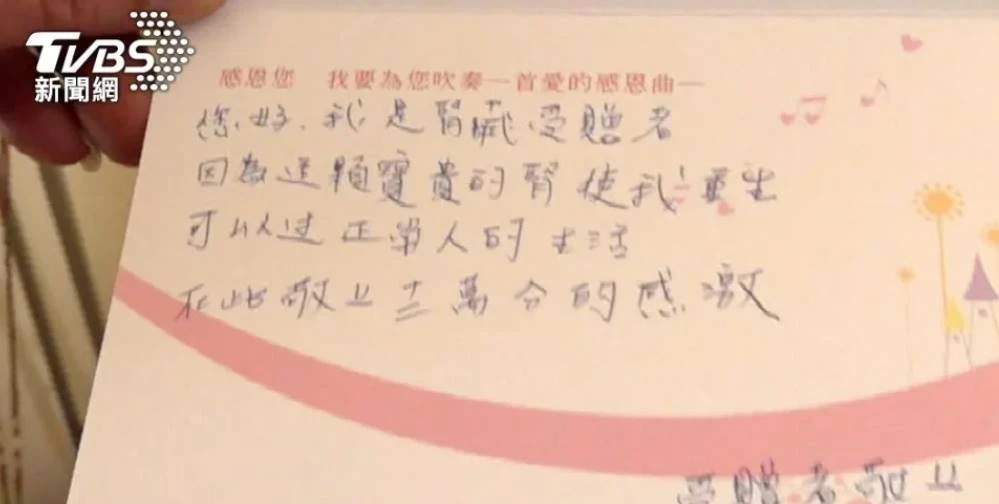 TVBS
新聞網
感恩您 我要為您吹奏一首愛的感恩曲—
您好,我是腎臟受贈者
因為這顆寶貴的腎使我重生
可以过正常人的生活
在此敬上十二萬分的感激
受贈者敬上